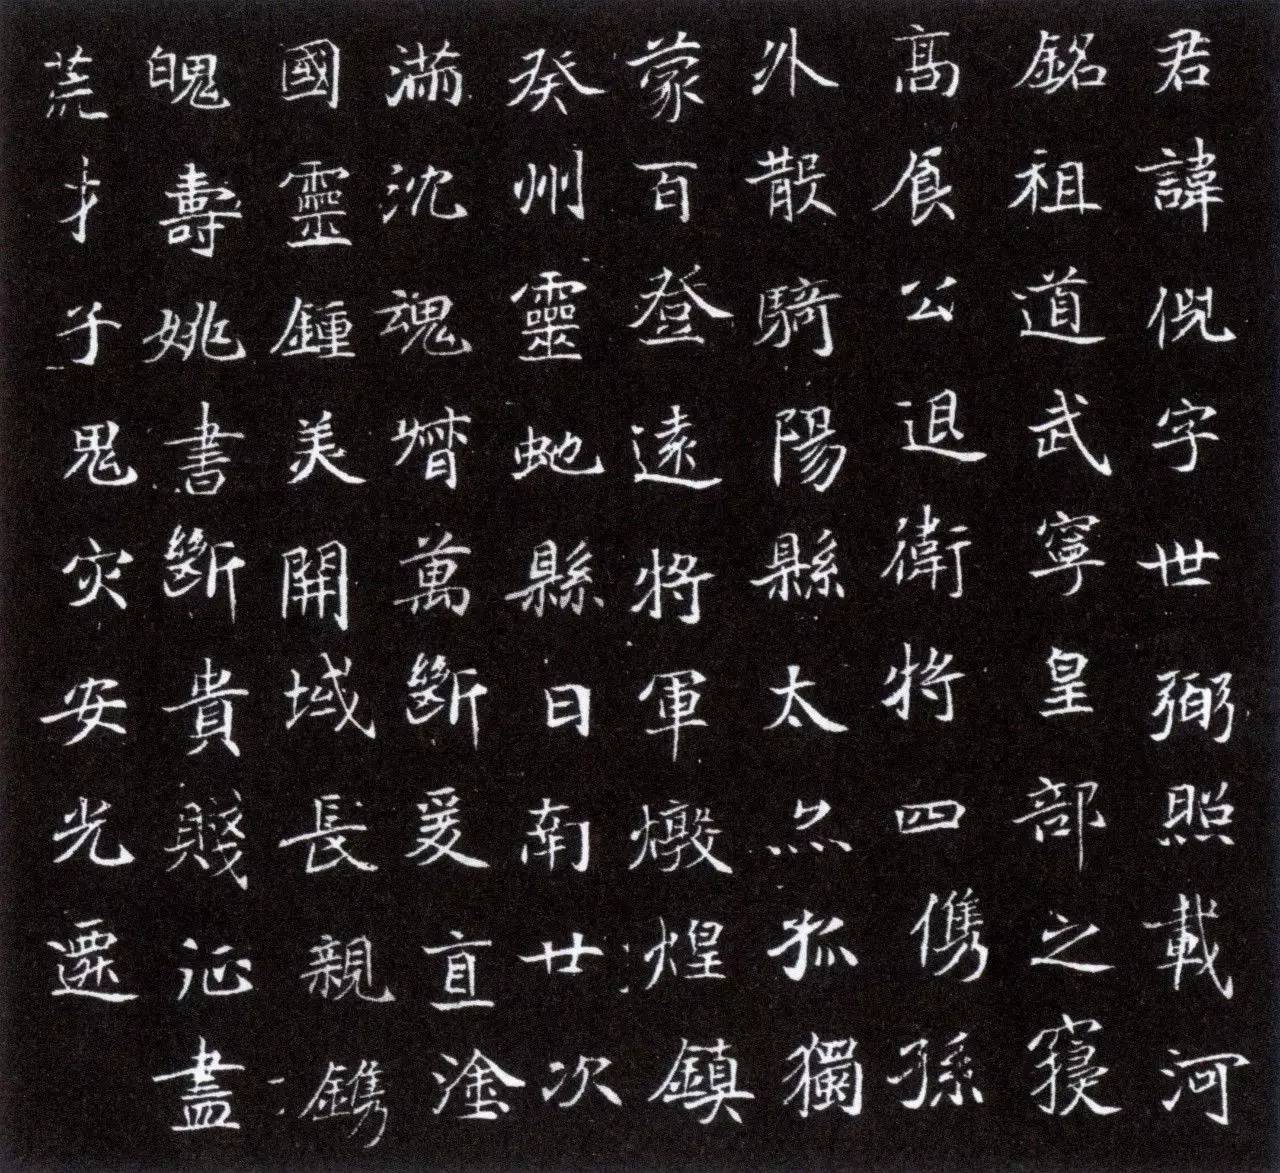 君諱倪字世弼照載河
銘祖道武寧皇部之寝
高飡公退衛将四儁孫
外散騎陽縣太㷊狐獨
蒙百登遠将軍燉煌鎮
癸州靈虵縣日南廿次
滿沈魂熸萬斷爰直塗
國靈鍾美開域長親鐫
魄壽姚書斷貴賤証盡
荒才子鬼灾安光遷